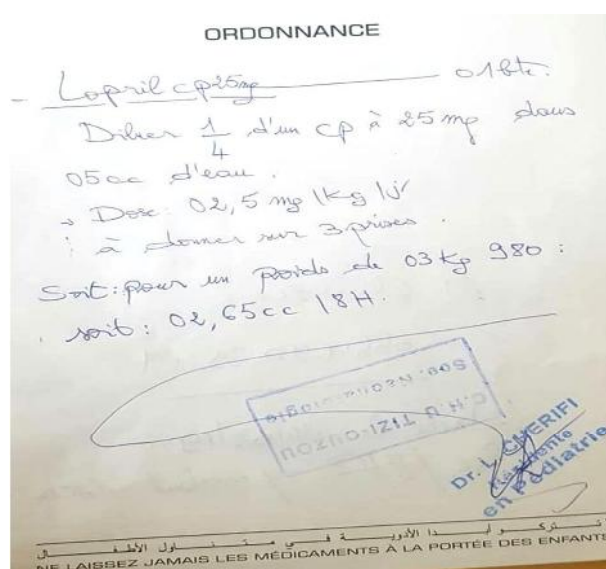 ORDONNANCE
- Lopril cp 25mg 01 bte.
Diluer 1/4 d'un cp à 25 mg dans
05cc d'eau.
→ Dose: 02,5 mg /Kg /jr
à donner sur 3 prises.
Soit: pour un poids de 03 Kg 980 :
soit: 02,65cc /8H.
C.H.U TIZI-OUZOU
Dr. L. CHERIFI
Résidente
en Pédiatrie
NE LAISSEZ JAMAIS LES MÉDICAMENTS À LA PORTÉE DES ENFANTS